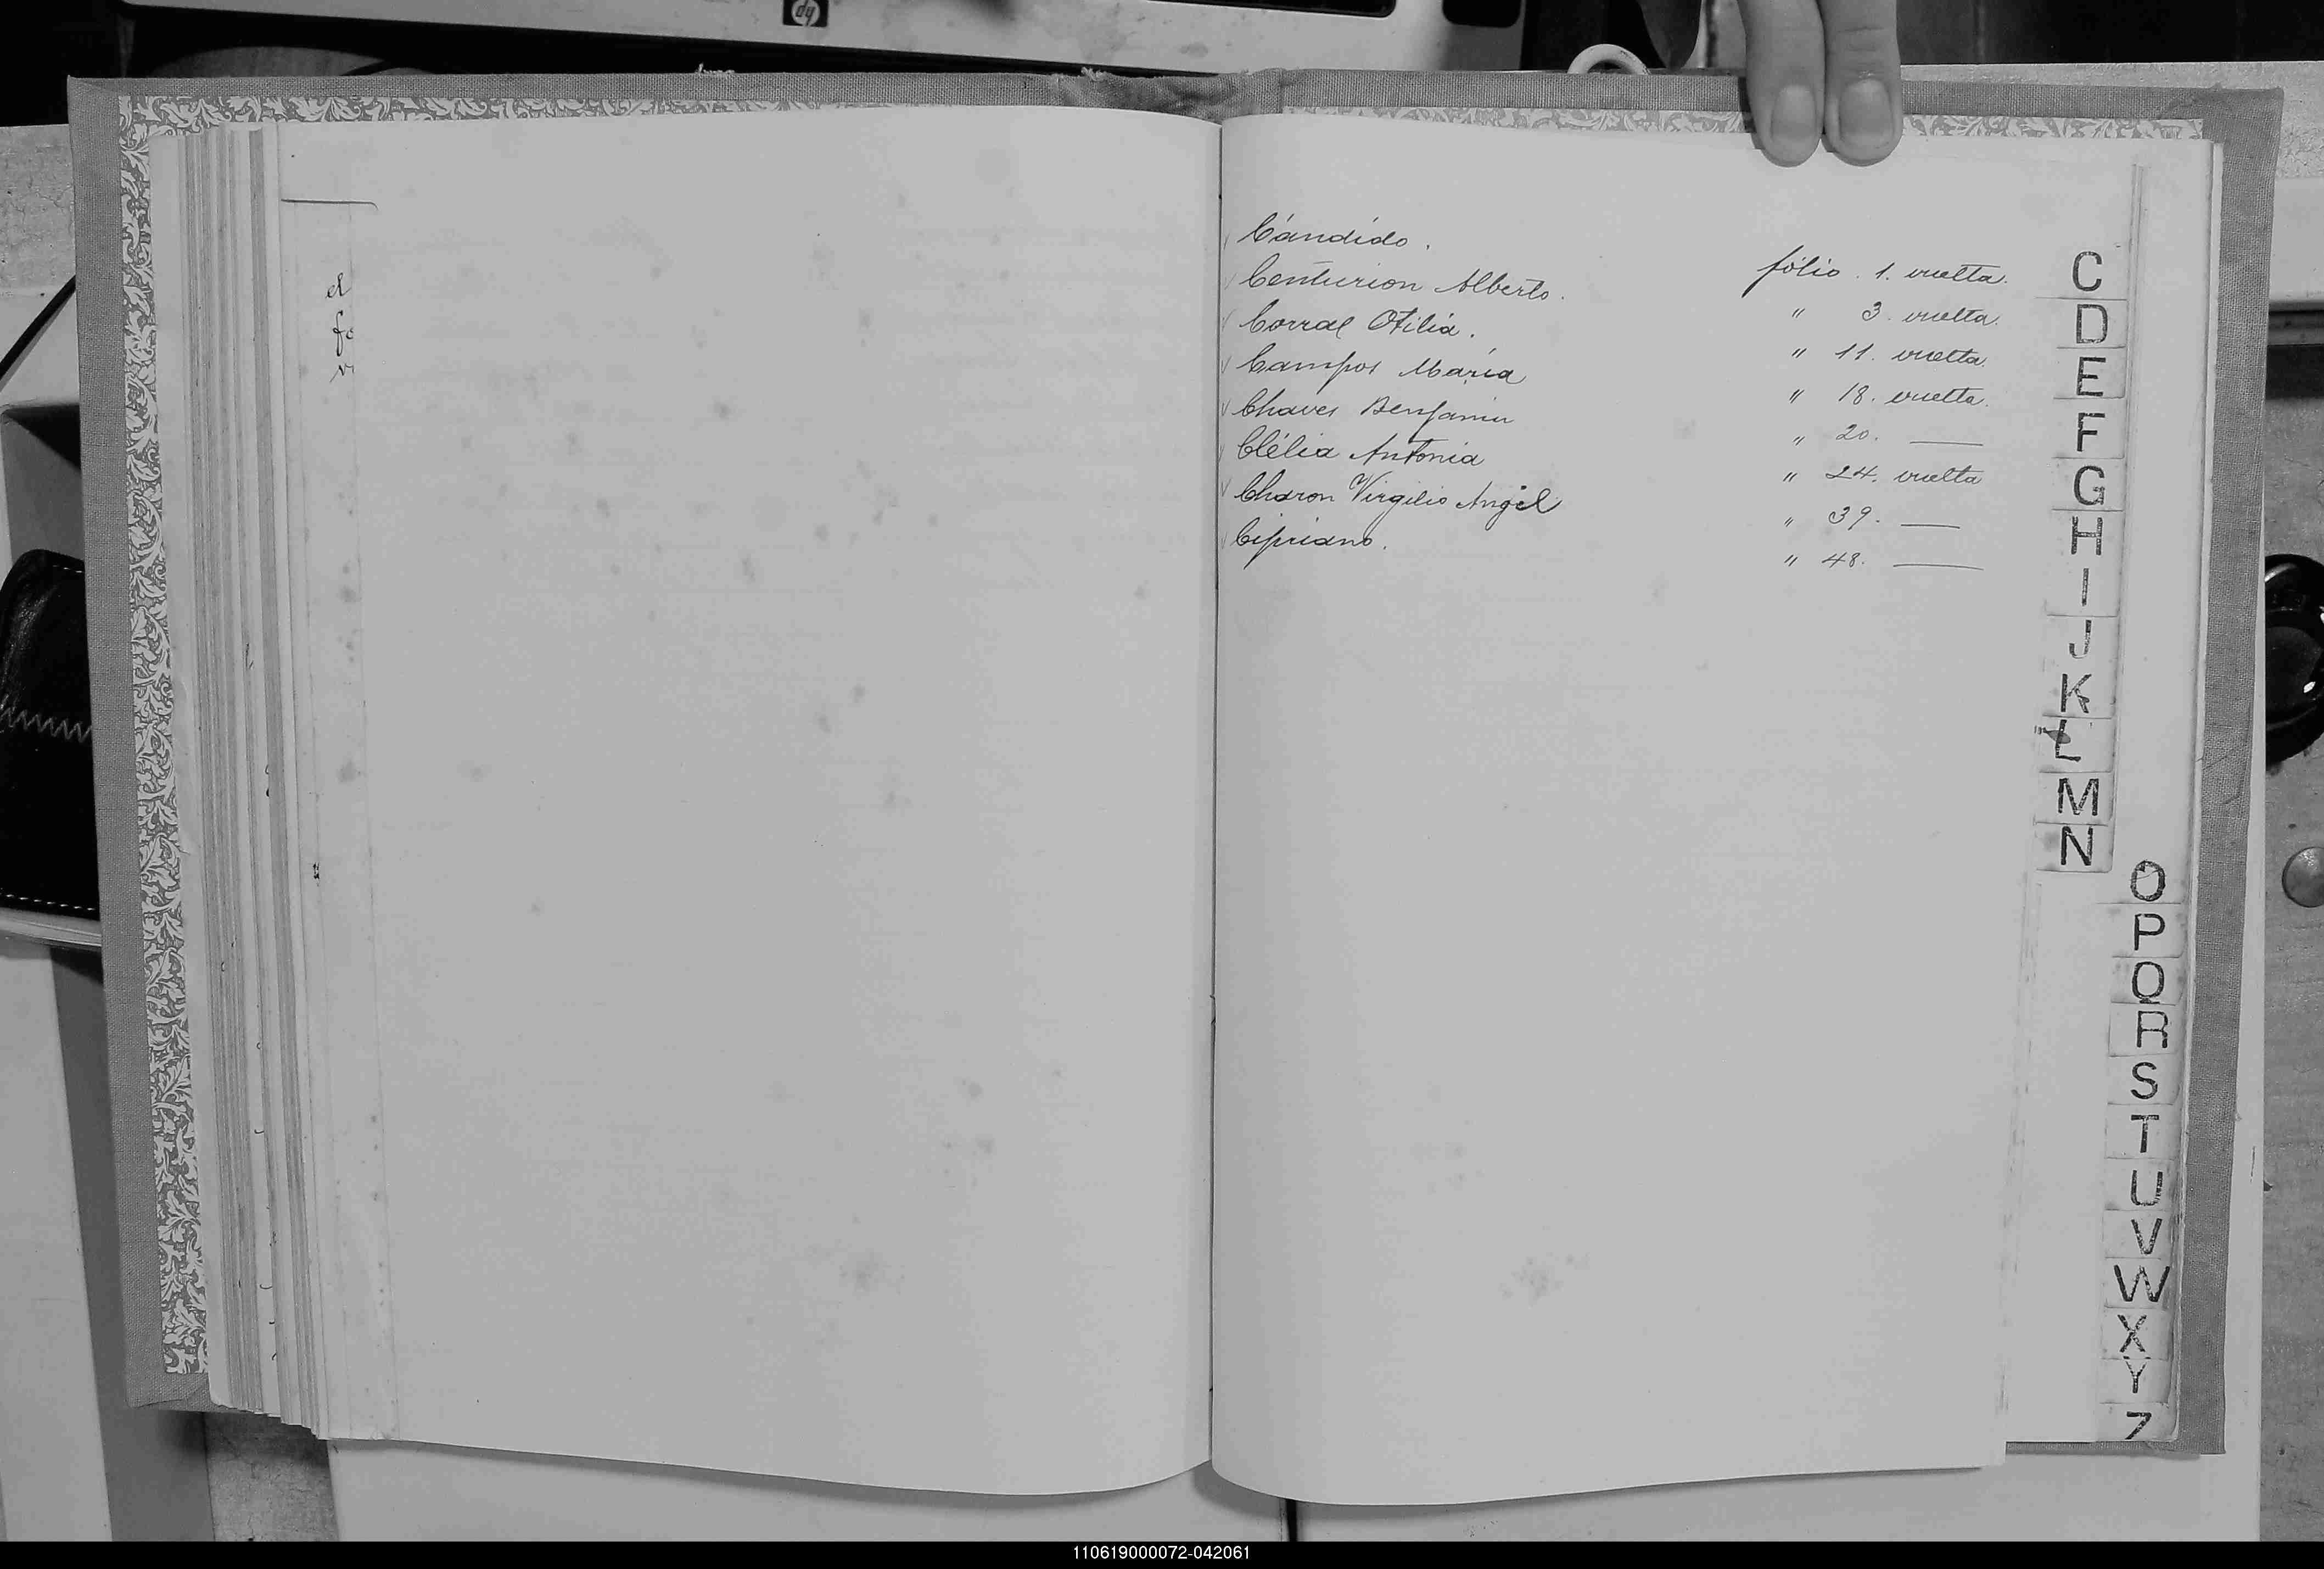 hp
el
fo
v
Cándido. folio. 1. vuelta.
Centurion Alberto. " 3. vuelta.
Corral Otilia. " 11. vuelta.
Campos María " 18. vuelta.
Chaves Benjamin " 20. ——
Clélia Antonia " 24. vuelta
Charon Virgilio Angel " 39. ——
Cipriano. " 48. ——
C
D
E
F
G
H
I
J
K
L
M
N
O
P
Q
R
S
T
U
V
W
X
Y
Z
110619000072-042061